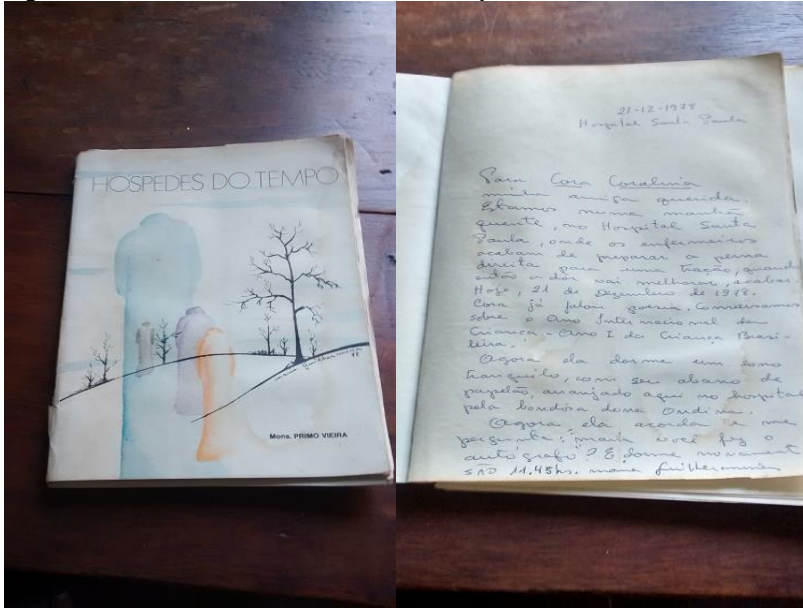 HOSPEDES DO TEMPO
Mons. PRIMO VIEIRA
21-12-1978
Hospital Santa Paula
Para Cora Coralina
minha amiga querida.
Estamos numa manhã
quente, no Hospital Santa
Paula, onde os enfermeiros
acabam de preparar a perna
direita para uma tração, quando
então a dor vai melhorar, acabar
Hoje, 21 de dezembro de 1978.
Cora já falou poesia. Conversamos
sobre o Ano Internacional da
Criança - Ano I da Criança Brasi-
leira.
Agora ela dorme um sono
tranquilo, com seu abano de
papelão, arranjado aqui no hospital
pela bondosa dona Ondina.
Agora ela acorda e me
pergunta: você fez o
autógrafo? E dorme novament
são 11.45hs.